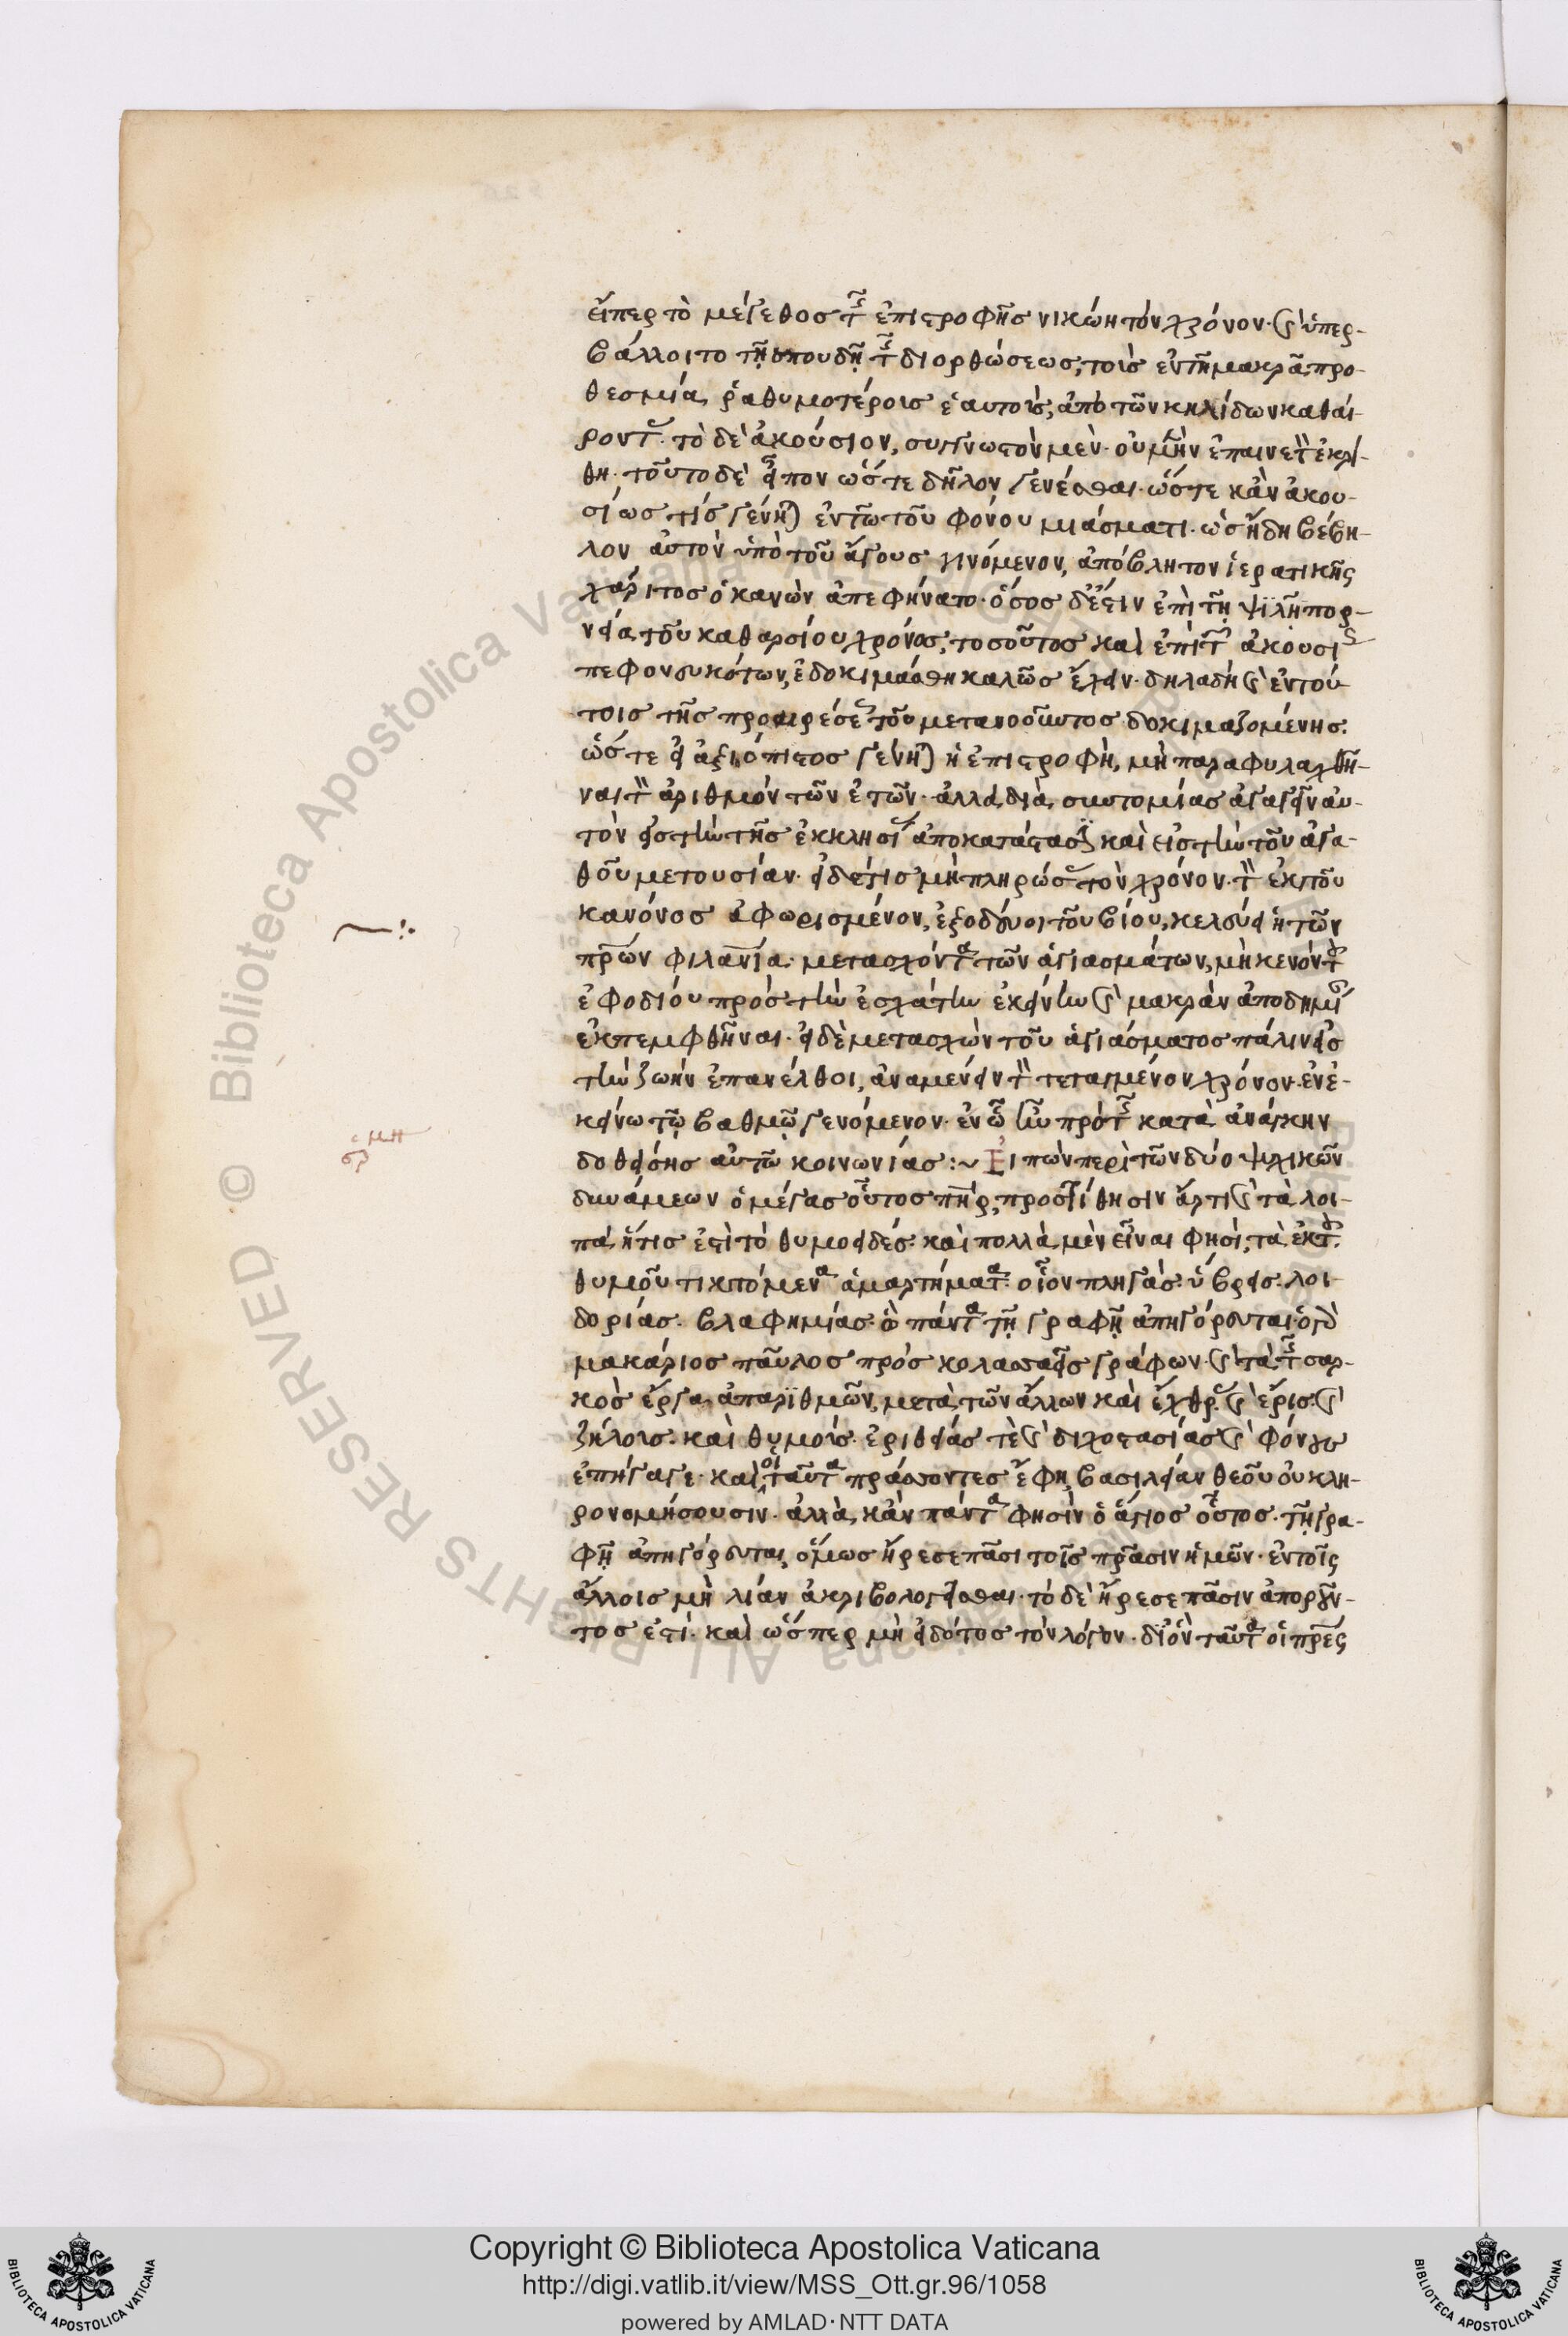 εἴπερ τὸ μέγεθος τῆς ἐπιστροφῆς νικώη τὸν χρόνον· καὶ ὑπερ-
βάλλοιτο τῇ σπουδῇ τῆς διορθώσεως, τοὺς ἐν τῇ μακρᾷ προ-
θεσμίᾳ ῥαθυμοτέροις ἑαυτοὺς, ἀπὸ τῶν κηλίδων καθαί-
ροντας· τὸ δὲ ἀκούσιον, συγγνωστὸν μὲν· οὐ μὴν ἐπαινετὸν ἐκρί-
θη· τοῦτο δὲ εἶπον ὥστε δῆλον γενέσθαι· ὥστε κἂν ἀκου-
σίως τίς γένηται ἐν τῷ τοῦ φόνου μιάσματι· ὡς ἤδη βέβη-
λον αὐτὸν ὑπὸ τοῦ ἄγους γινόμενον, ἀπόβλητον ἱερατικῆς
χάριτος ὁ κανὼν ἀπεφήνατο· ὅσος δέ ἐστιν ἐπὶ τῇ ψιλῇ πορ-
νείᾳ τοῦ καθαρσίου χρόνος, τοσοῦτος καὶ ἐπὶ τῶν ἀκουσίως
πεφονευκότων, ἐδοκιμάσθη καλῶς ἔχειν· δηλαδὴ καὶ ἐν τού-
τοις τῆς προαιρέσεως τοῦ μετανοοῦντος δοκιμαζομένης.
ὥστε εἰ ἀξιόπιστος γένηται ἡ ἐπιστροφὴ, μὴ παραφυλαχθῆ-
ναι τὸν ἀριθμὸν τῶν ἐτῶν· ἀλλὰ διὰ συντομίας ἀγαγεῖν αὐ-
τὸν εἰς τὴν τῆς ἐκκλησίας ἀποκατάστασιν καὶ εἰς τὴν τοῦ ἀγα-
θοῦ μετουσίαν· εἰ δέ τις μὴ πληρώσας τὸν χρόνον· τὸν ἐκ τοῦ
κανόνος ἀφωρισμένον, ἐξοδεύοι τοῦ βίου, κελεύει ἡ τῶν
πρῶν φιλανία· μετασχόντα τῶν ἁγιασμάτων, μὴ κενὸν τοῦ
ἐφοδίου πρὸς τὴν ἐσχάτην ἐκείνην καὶ μακρὰν ἀποδημίαν
ἐκπεμφθῆναι· εἰ δὲ μετασχὼν τοῦ ἁγιάσματος πάλιν εἰς
τὴν ζωὴν ἐπανέλθοι, ἀναμένειν τὸν τεταγμένον χρόνον· ἐν ἐ-
κείνῳ τῷ βαθμῷ γενόμενον· ἐν ᾧ ἦν πρὸ τῆς κατὰ ἀνάγκην
δοθείσης αὐτῷ κοινωνίας :~ Εἰπὼν περὶ τῶν δύο ψυχικῶν
δυνάμεων ὁ μέγας οὗτος πὴρ, προστίθησιν ἄρτι καὶ τὰ λοι-
πά, ἥτις ἐστὶ τὸ θυμοειδές· καὶ πολλὰ μὲν εἶναι φησί, τὰ ἐκ τοῦ
θυμοῦ τικτόμενα ἁμαρτήματα· οἷον πληγάς· ὕβρεις· λοι-
δορίας· βλασφημίας· ἃ πάντα τῇ γραφῇ ἀπηγόρευται· ὁ γὰρ
μακάριος παῦλος πρὸς κολασσαεῖς γράφων· καὶ τὰ τῆς σαρ-
κὸς ἔργα ἀπαριθμῶν, μετὰ τῶν ἄλλων καὶ ἔχθρας καὶ ἔρις καὶ
ζήλοις· καὶ θυμοὺς· ἐριθείας τὲ καὶ διχοστασίας καὶ φόνους
ἐπήγαγε· καὶ οἱ ταῦτα πράσσοντες ἔφη, βασιλείαν θεοῦ οὐ κλη-
ρονομήσουσιν· ἀλλὰ, κἂν πάντα φησὶν ὁ ἅγιος οὗτος· τῇ γρα-
φῇ ἀπηγόρευται, ὅμως ἤρεσε πᾶσι τοῖς πρᾶσιν ἡμῶν· ἐν τοῖς
ἄλλοις μὴ λίαν ἀκριβολογεῖσθαι· τὸ δὲ ἤρεσε πᾶσιν ἀποροῦν-
τος ἐστί· καὶ ὥσπερ μὴ εἰδότος τὸν λόγον· δι' ὃν ταῦτα οἱ πρες
σημ
Copyright © Biblioteca Apostolica Vaticana
http://digi.vatlib.it/view/MSS_Ott.gr.96/1058
powered by AMLAD·NTT DATA
BIBLIOTECA APOSTOLICA VATICANA
BIBLIOTECA APOSTOLICA VATICANA